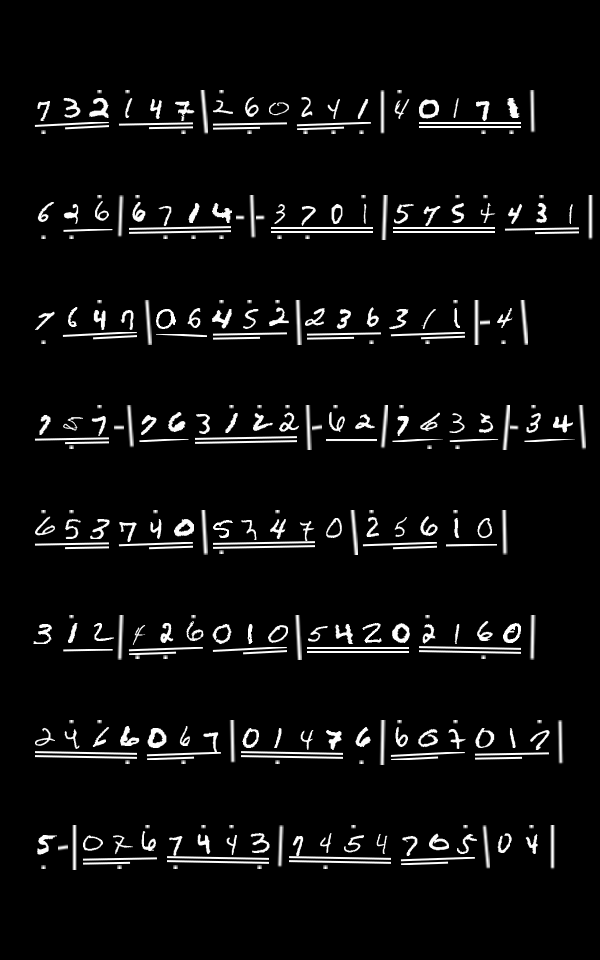 732147|260241|40171
626|6714-|-3701|5754431
7647|06452|236311|-4|
757-|763122|-62|7633|-34|
653740|53470|25610|
312|426010|54202160|
2466067|01476|607017|
5-|0767443|7454705|04|